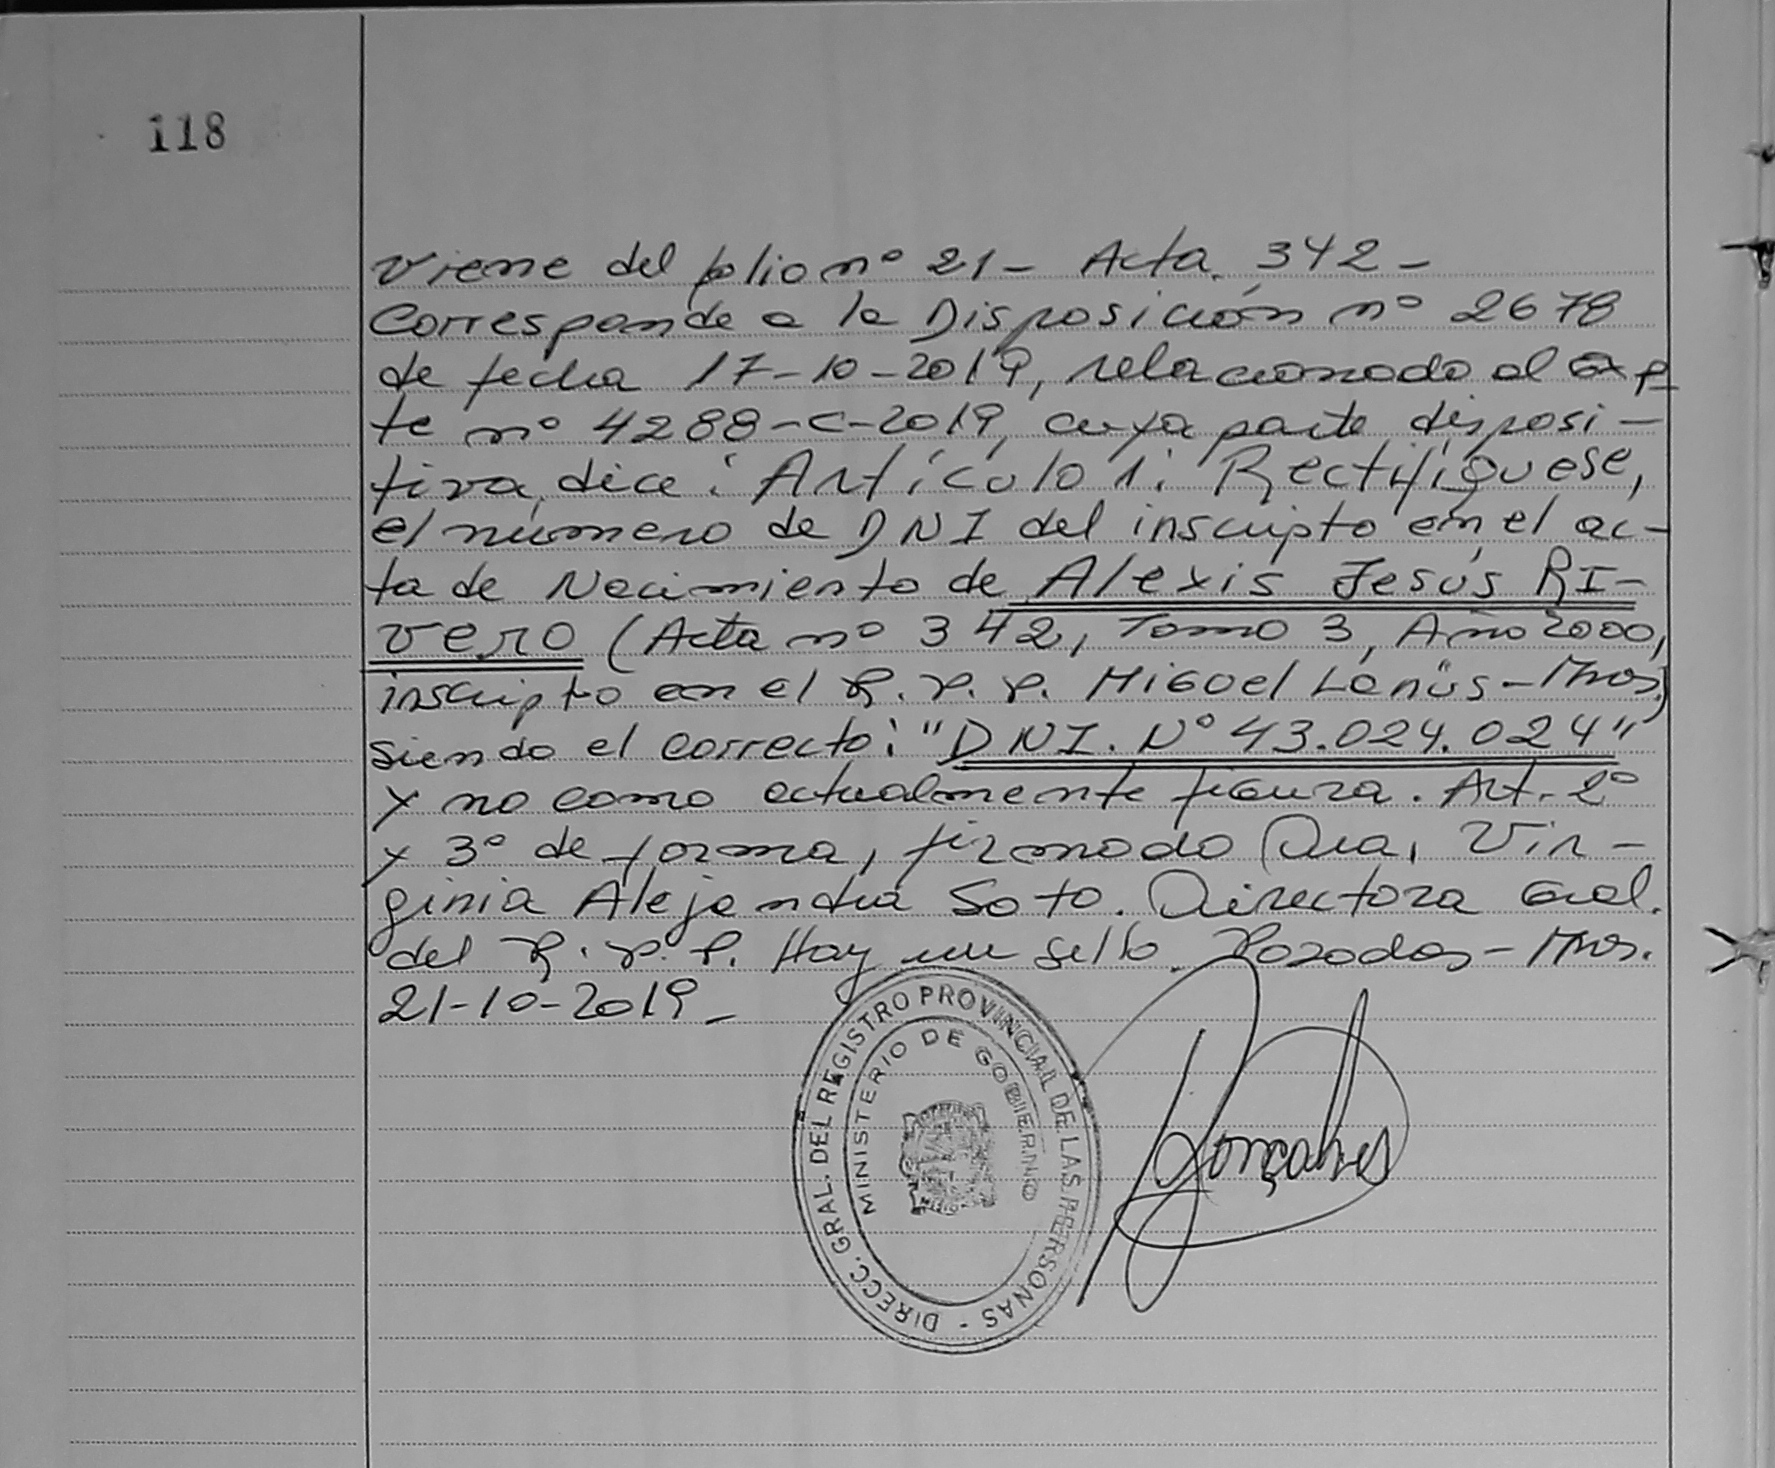 118
Viene del folio nº 21 - Acta. 342 -
Corresponde a la Disposición nº 2678
de fecha 17-10-2019, relacionado al Exp
te nº 4288-C-2019, cuya parte disposi-
tiva, dice: Artículo 1: Rectifíquese,
el número de DNI del inscripto en el ac-
ta de Nacimiento de Alexis Jesús RI-
vero (Acta nº 342, Tomo 3, Año 2000,
inscripto en el R.P.P. Miguel Lanús - Mnes)
siendo el correcto: "DNI. Nº 43.024.024"
y no como actualmente figura. Art. 2º
y 3º de forma, firmado Dra, Vir-
ginia Alejandra Soto. Directora Gral.
del R.P.P. Hay un sello. Posadas - Mnes.
21-10-2019 -
DIRECC. GRAL. DEL REGISTRO PROVINCIAL DE LAS PERSONAS -
MINISTERIO DE GOBIERNO